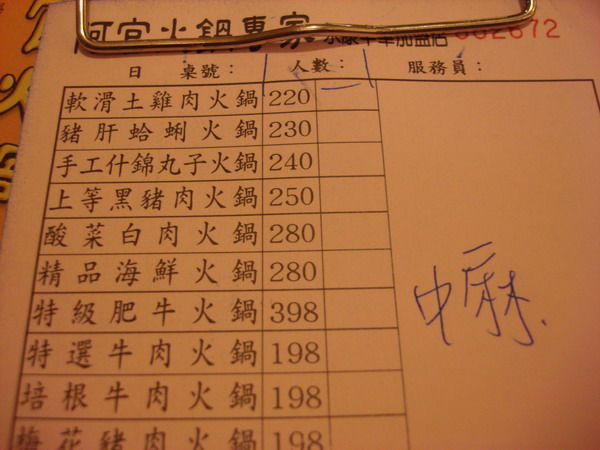 阿官火鍋專家 永康中華加盟店 002672
日 桌號： 人數： 服務員：
軟滑土雞肉火鍋 220 一
豬肝蛤蜊火鍋 230
手工什錦丸子火鍋 240
上等黑豬肉火鍋 250
酸菜白肉火鍋 280
精品海鮮火鍋 280
特級肥牛火鍋 398
中麻
特選牛肉火鍋 198
培根牛肉火鍋 198
梅花豬肉火鍋 198